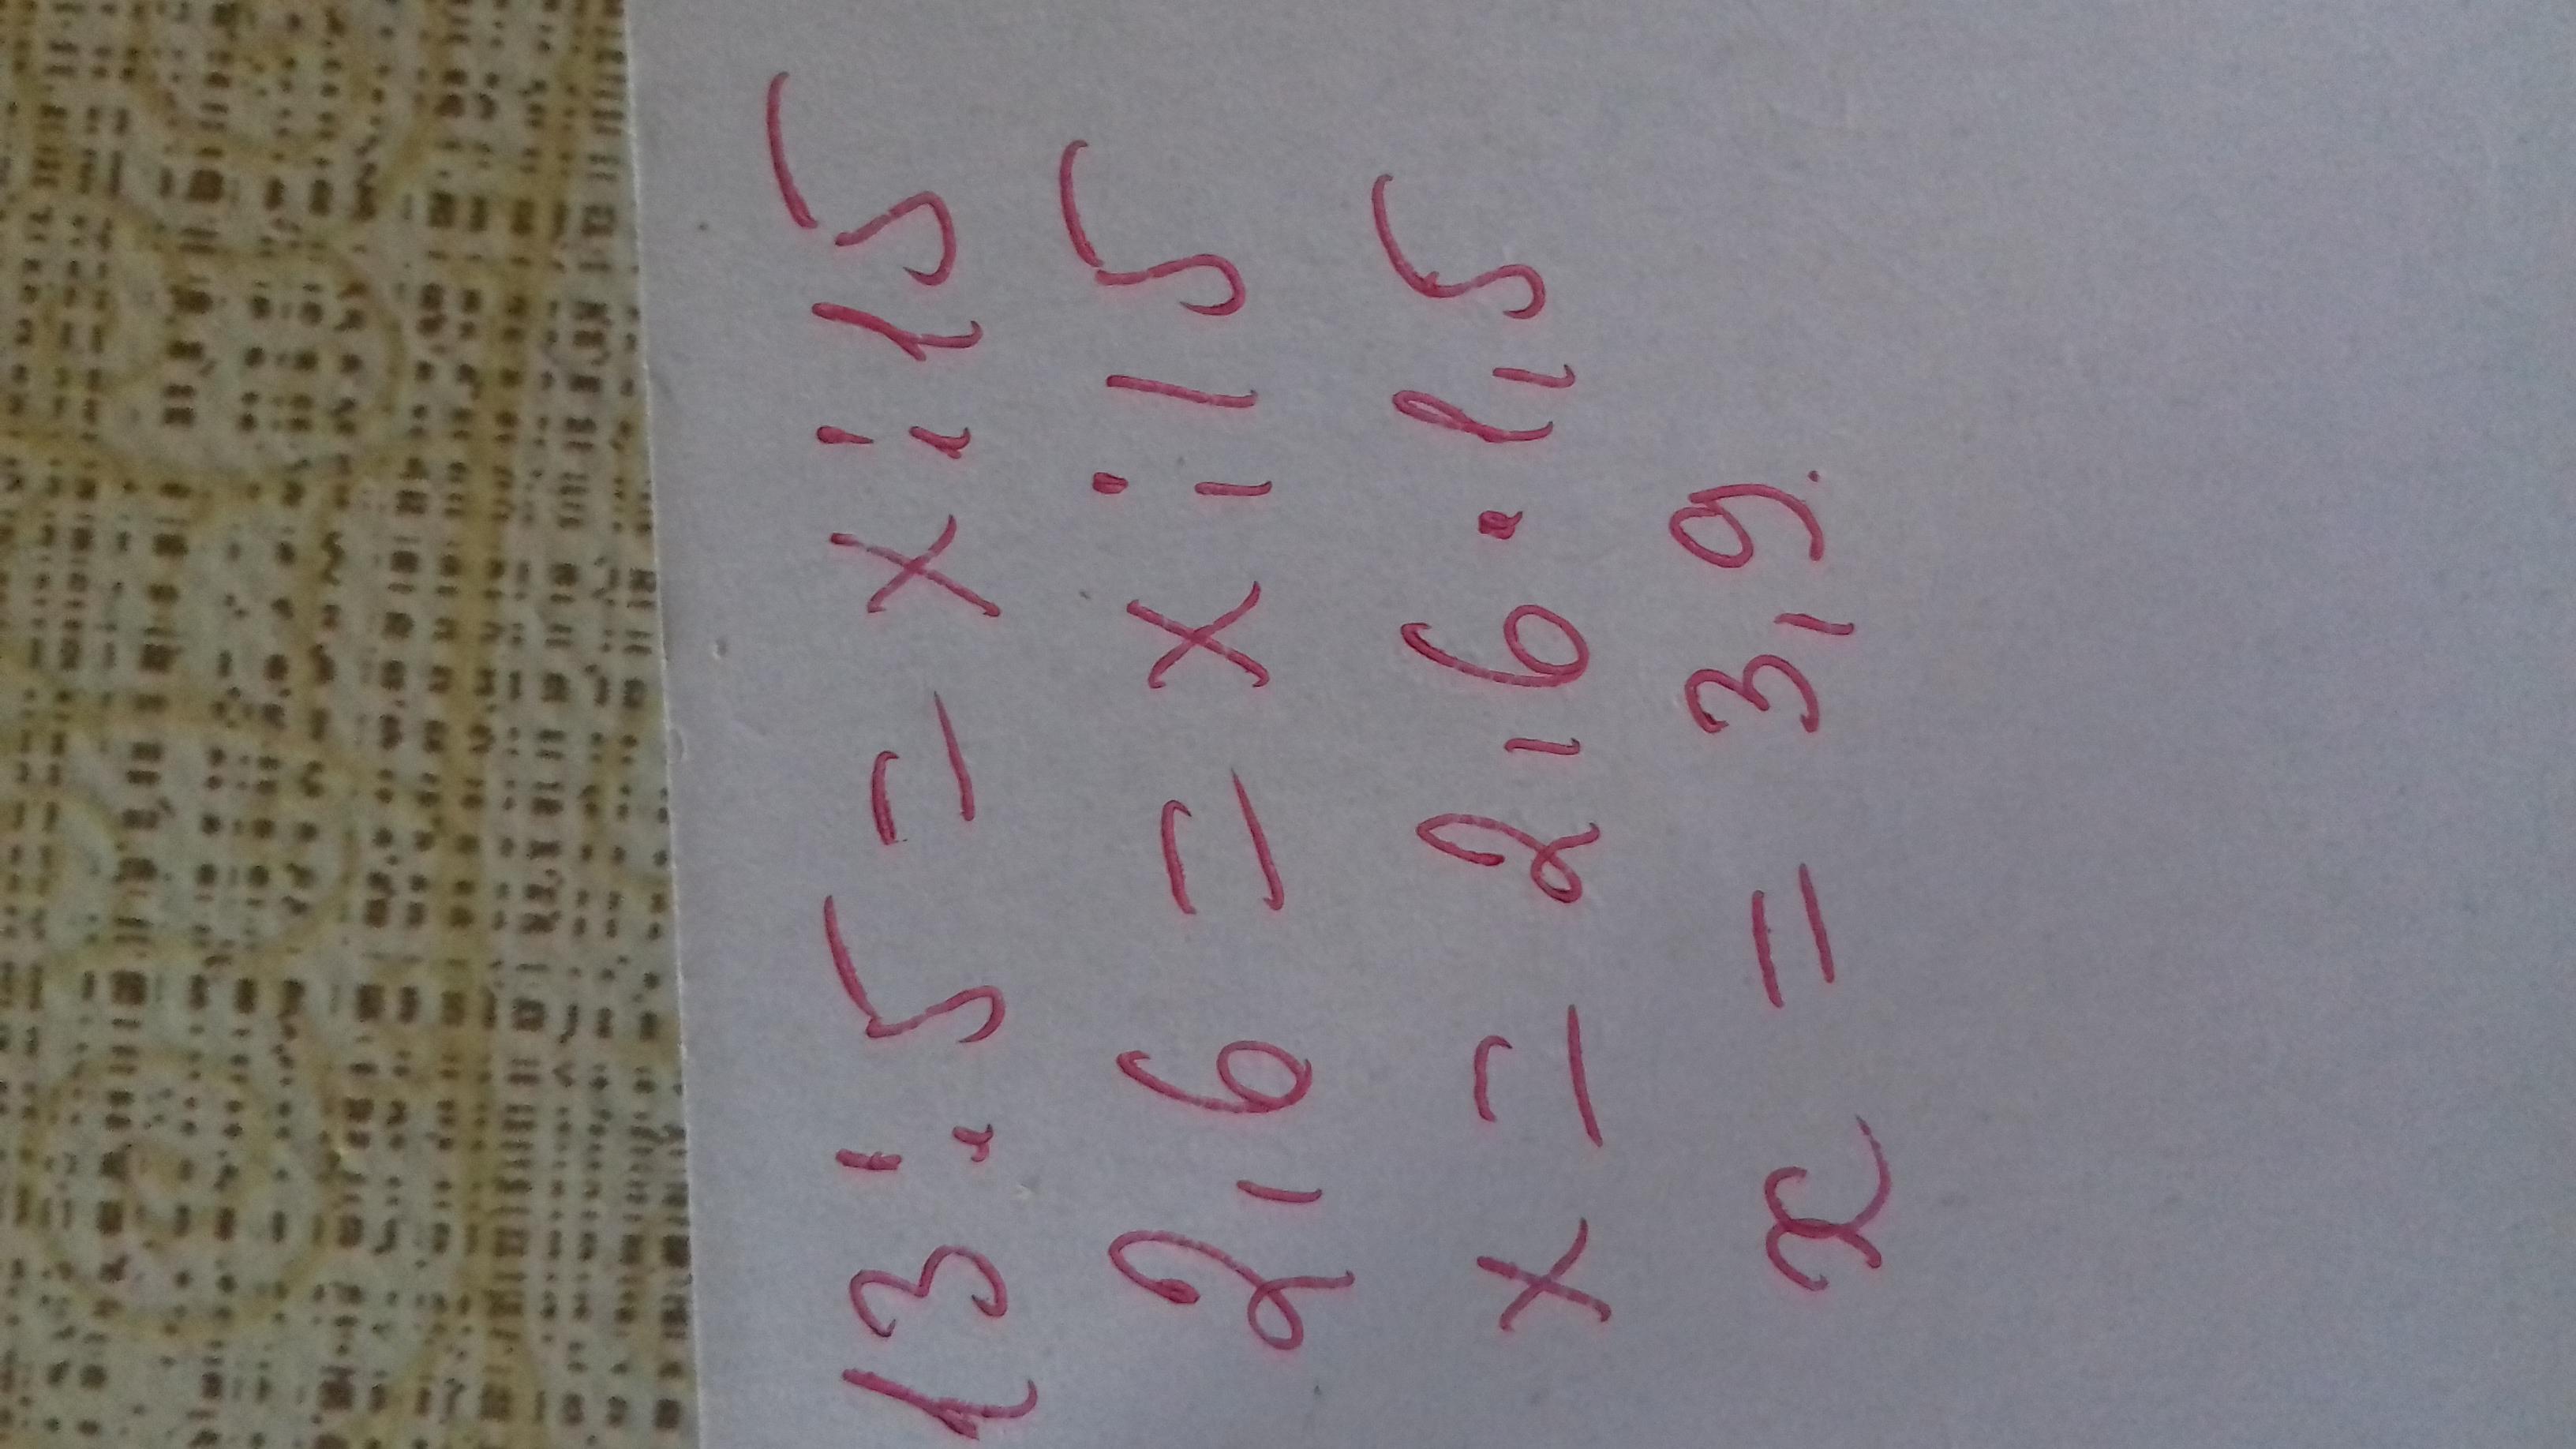 13:5 = x:15
2,6 = x:15
x = 2,6 · 1,5
x = 3,9.